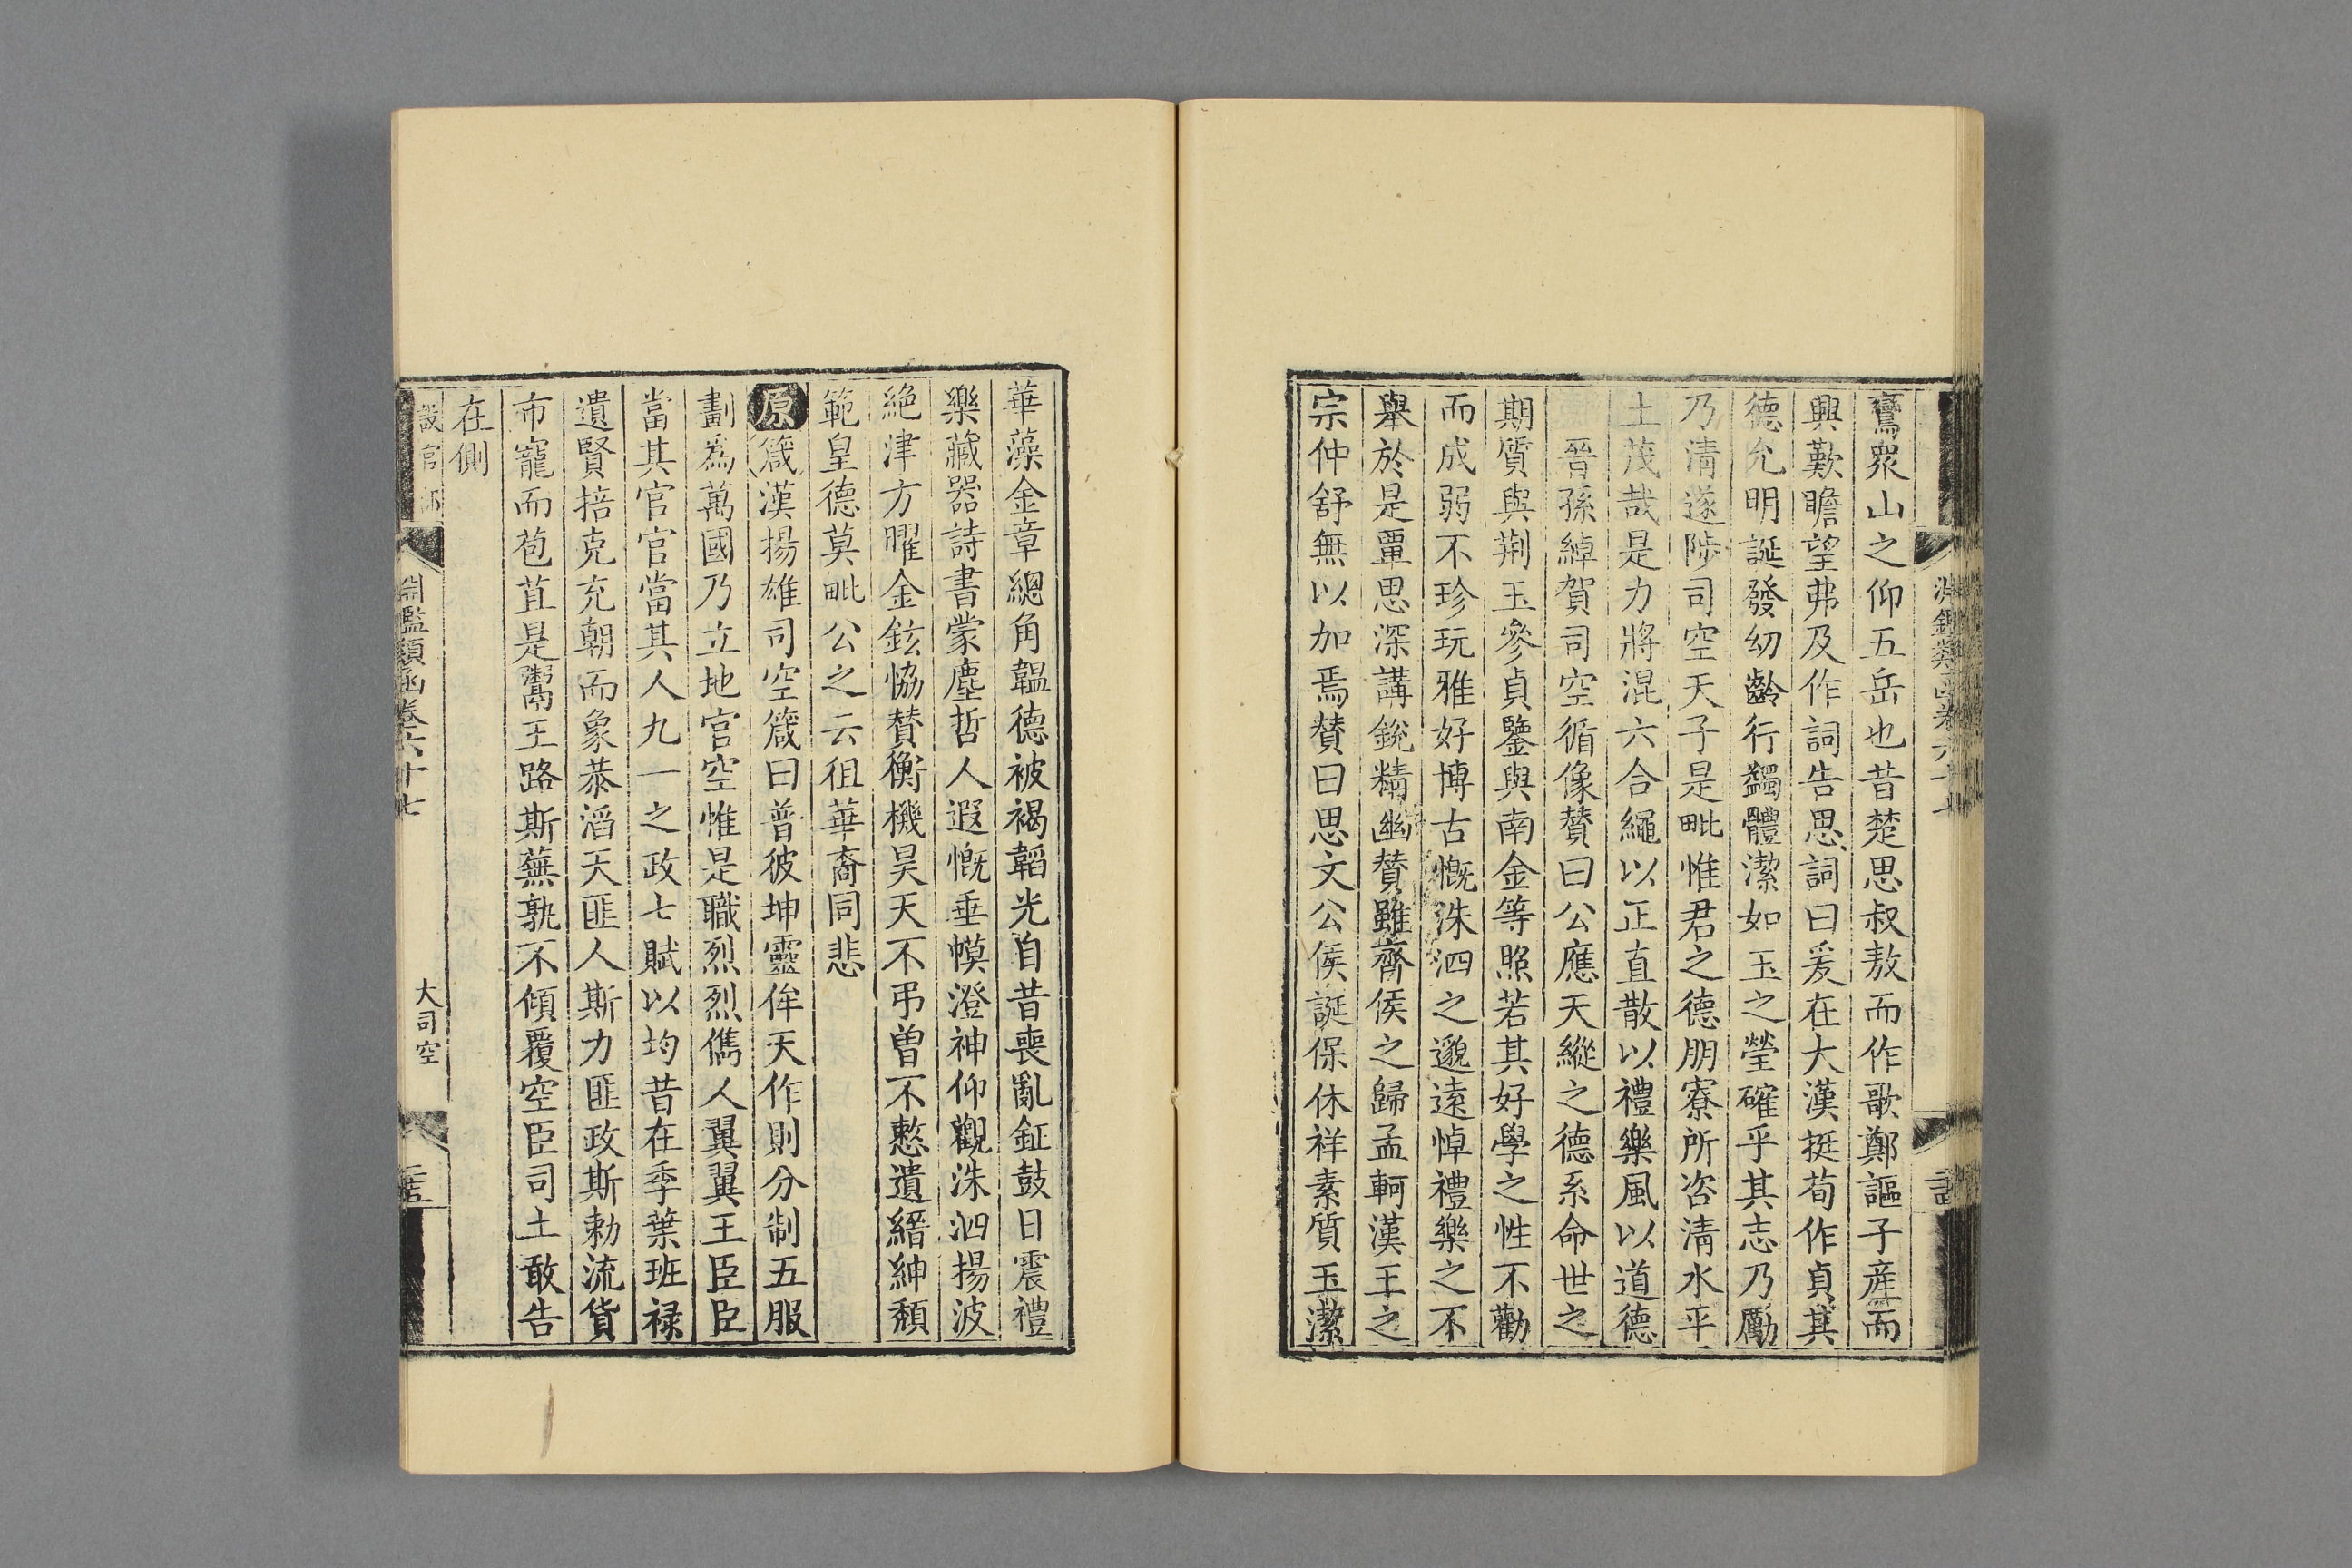 鸞衆山之仰五岳也昔楚思叔敖而作歌鄭謳子産而
興歎瞻望弗及作詞告思詞曰爰在大漢挺荀作貞其
德允明誕發幼齡行蠲體潔如玉之瑩確乎其志乃勵
乃清遂陟司空天子是毗惟君之德朋寮所咨清水平
土茂哉是力將混六合繩以正直散以禮樂風以道德
晉孫綽賀司空循像贊曰公應天縱之德系命世之
期質與荆玉參貞鑒與南金等照若其好學之性不勸
而成弱不珍玩雅好博古慨洙泗之邈遠悼禮樂之不
舉於是覃思深講鋭精幽贊雖齊侯之歸孟軻漢王之
宗仲舒無以加焉贊曰思文公侯誕保休祥素質玉潔
華藻金章總角韞德被褐韜光自昔喪亂鉦鼓日震禮
樂藏器詩書蒙塵哲人遐慨垂幙澄神仰觀洙泗揚波
絶津方曜金鉉恊賛衡機昊天不弔曾不憖遺縉紳頹
範皇德莫毗公之云徂華裔同悲
原箴漢揚雄司空箴曰普彼坤靈侔天作則分制五服
劃為萬國乃立地官空惟是職烈烈儁人翼翼王臣臣
當其官官當其人九一之政七賦以均昔在季葉班禄
遺賢掊克充朝而象恭滔天匪人斯力匪政斯勑流貨
市寵而苞苴是鬻王路斯蕪孰不傾覆空臣司土敢告
在側
設官部
淵鑑類函卷六十七
大司空